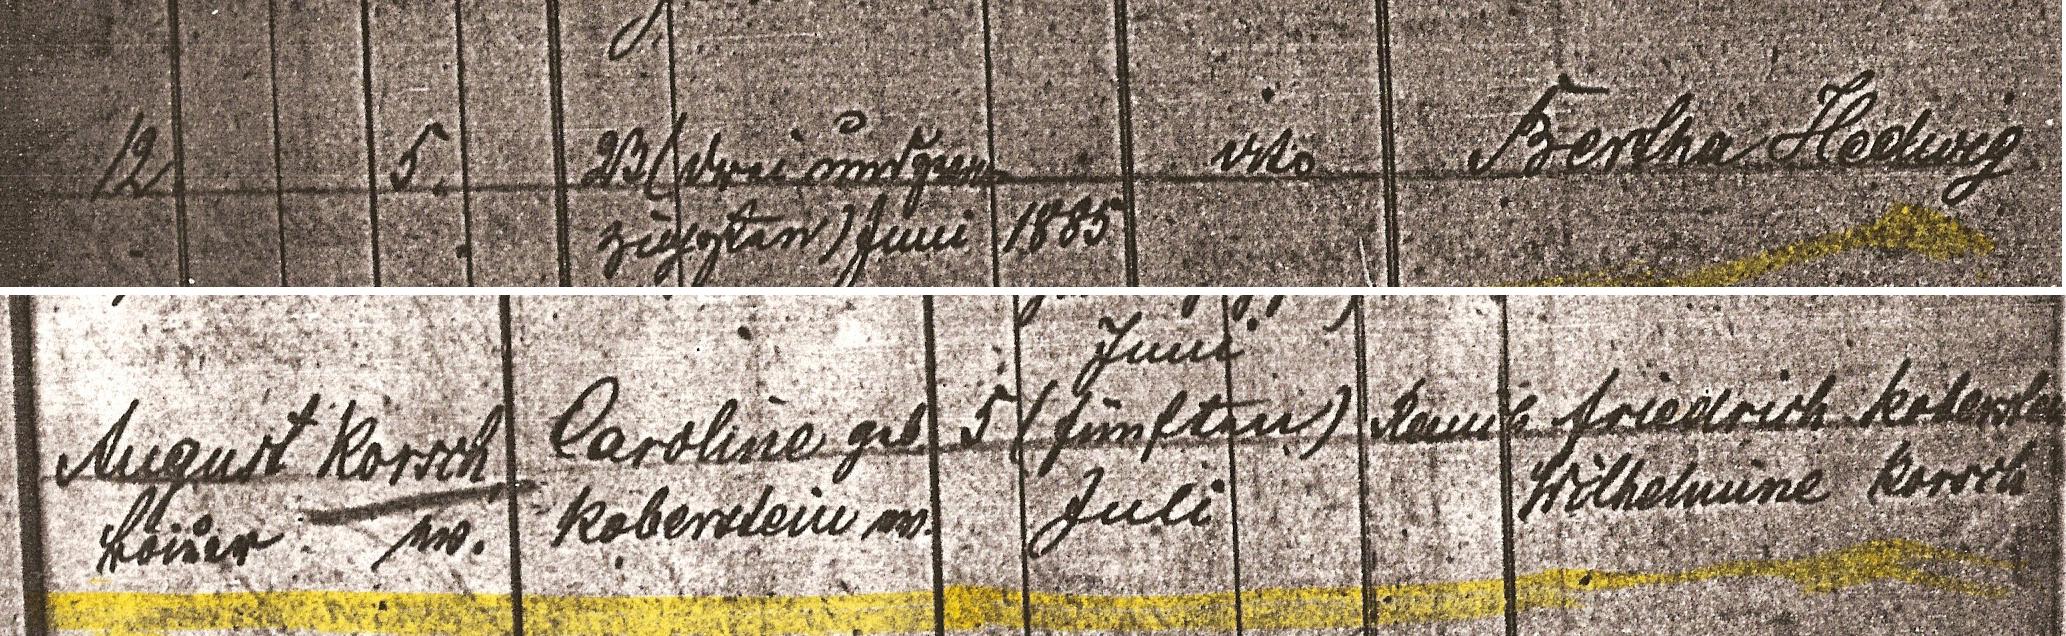 12 5. 23 (drei und zwan- dito Bertha Hedwig
zigsten) Juni 1885
Juni
August Korsch, Caroline geb 5 (fünften) Friedrich Koberstein
Juli Wilhelmine Korsch
ev. Koberstein ev.